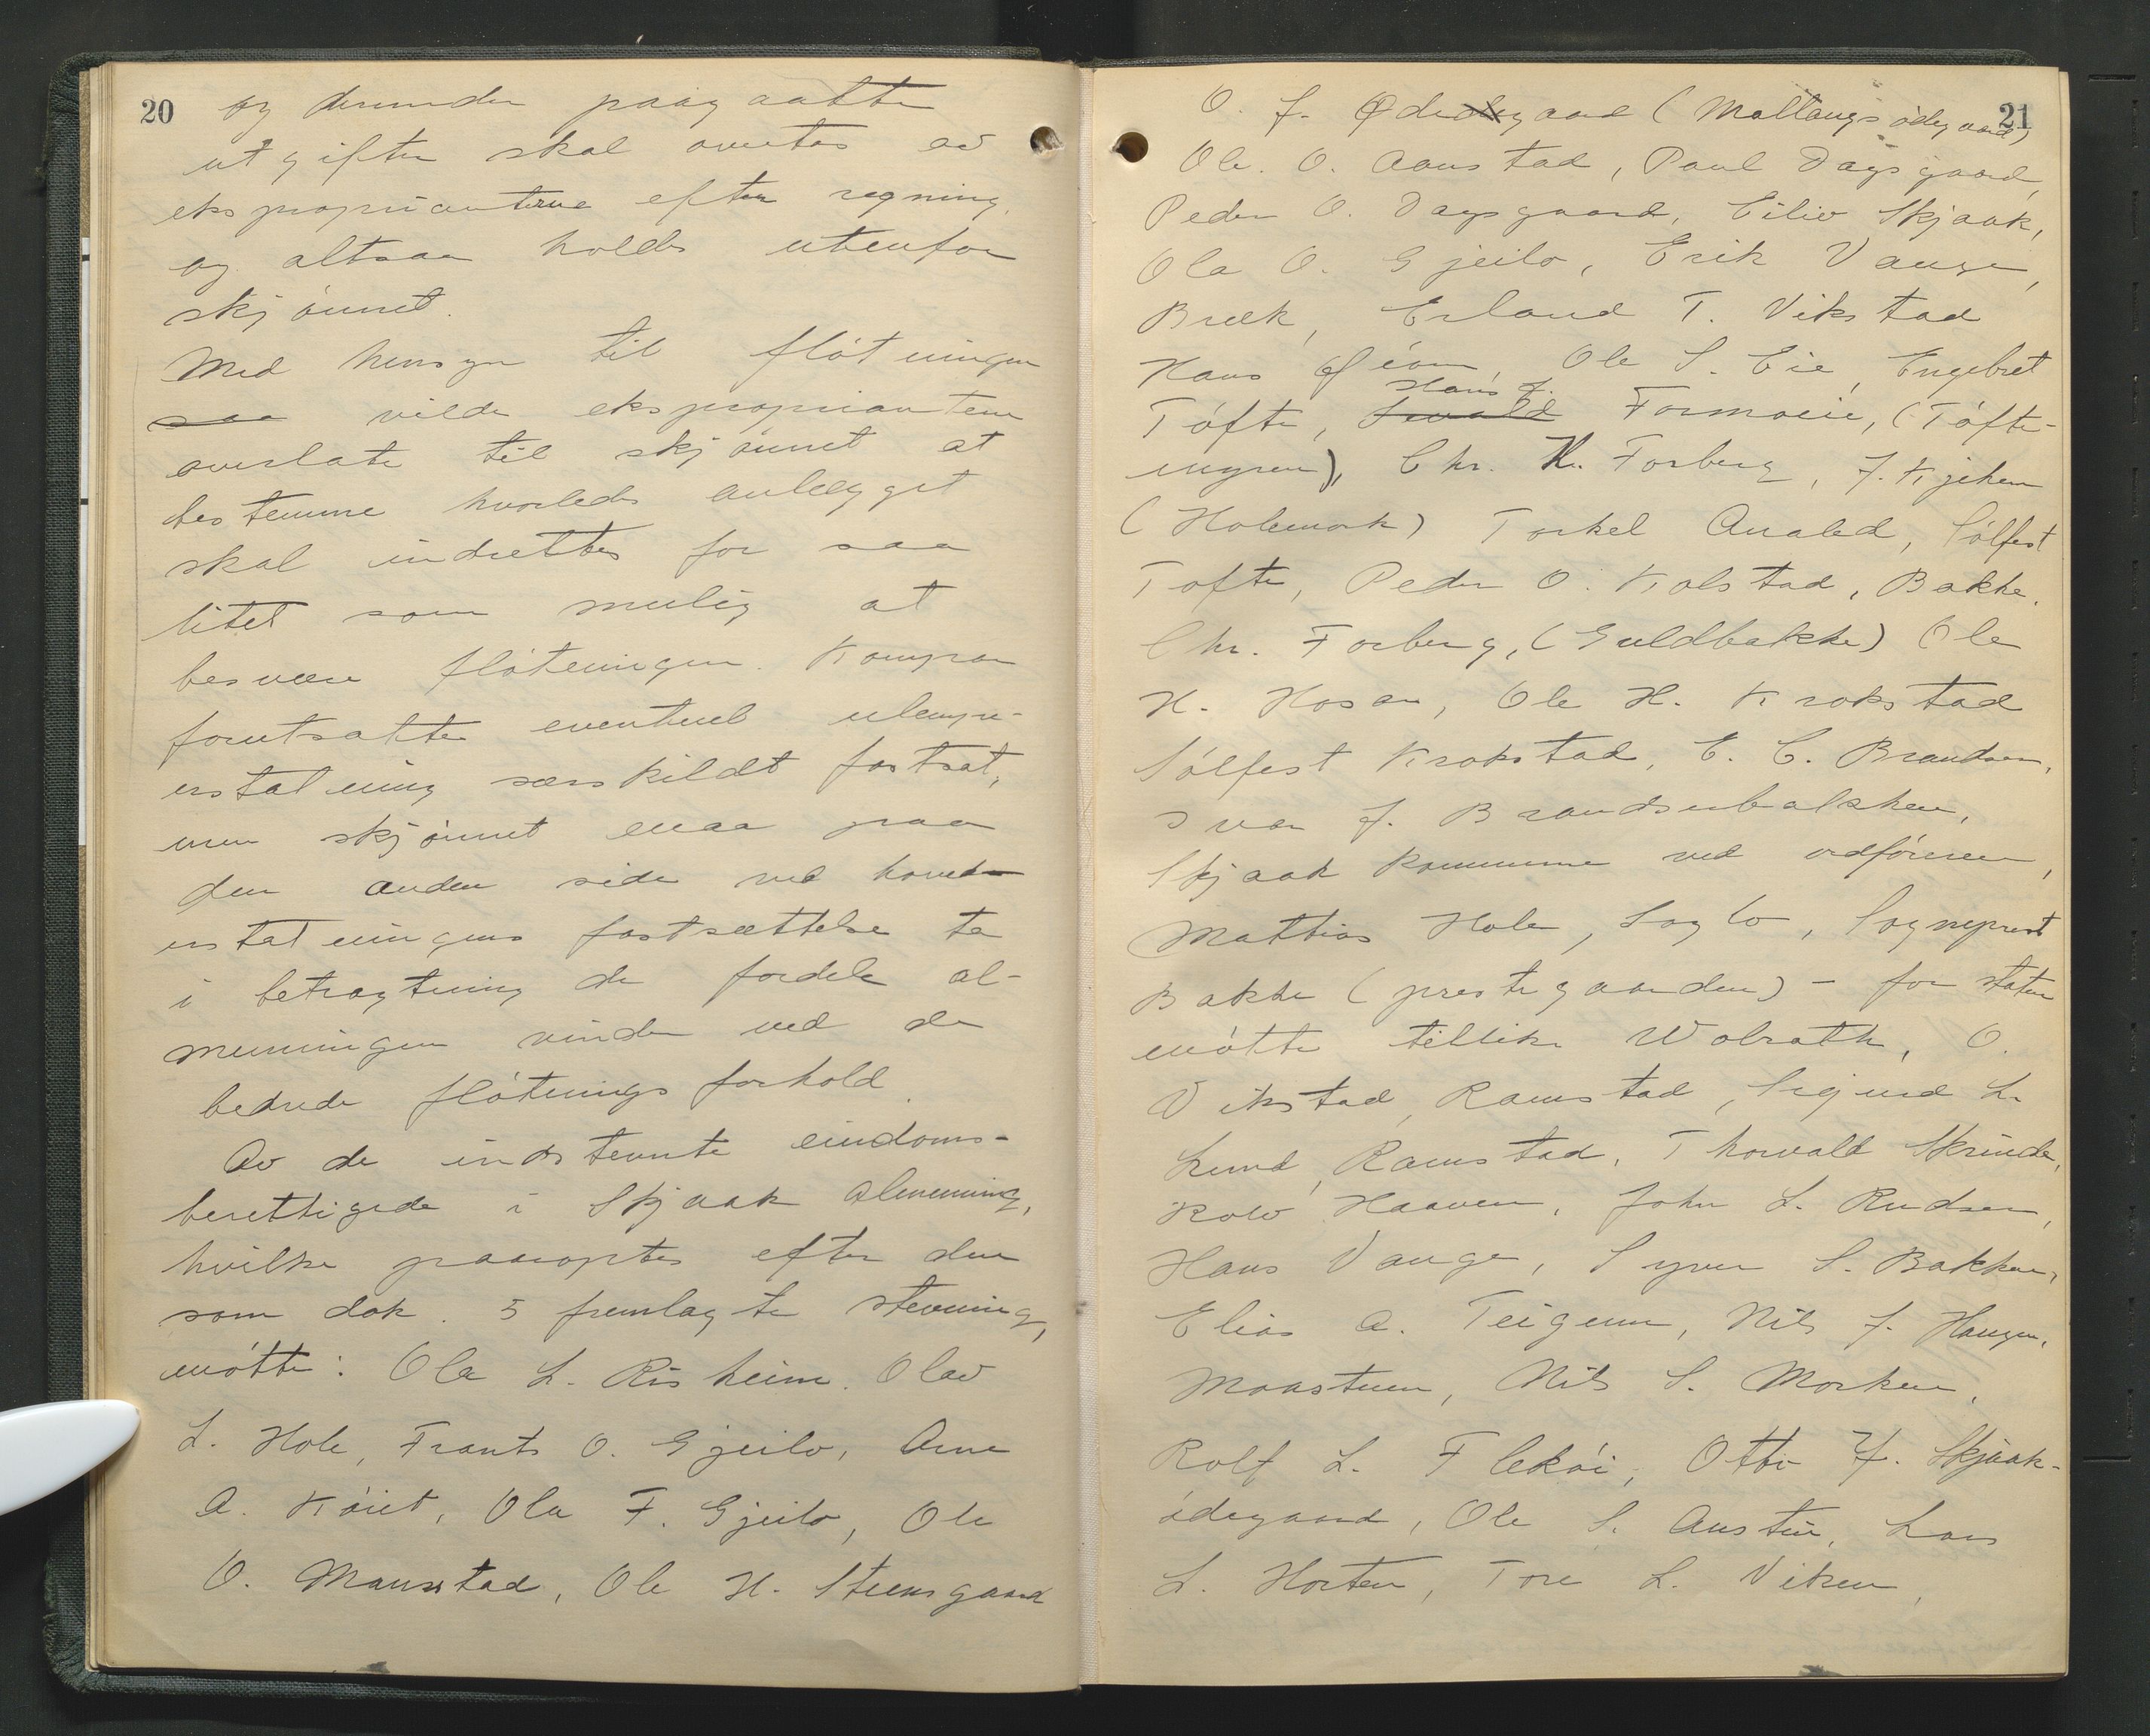 20
og derunder paagaatte
utgifter skal overtas av
eksproprianterne efter regning,
og altsaa holdes utenfor
skjønnet.
Med hensyn til fløtningen
saa vilde eksproprianterne
overlate til skjønnet at
bestemme hvorledes anlægget
skal indrettes for saa
litet som mulig at
besvære fløtningen.
forutsatte eventuel ulempe-
erstatning særskildt fastsat,
men skjønnet maa paa
den anden side ved hoved-
erstatningens fastsættelse ta
i betragtning de fordele al-
menningen vinder ved de
bedrede fløtningsforhold.
Av de indstevnte eiendoms-
berettigede i Skjaak almenning,
hvilke paaroptes efter den
som dok. 5 fremlagte stevning,
møtte: Ola L. Risheim. Olav
L. Hole, Frants O. Gjeilo, Arne
A. Køiet, Ola F. Gjeilo, Ole
O. Maurstad, Ole H. Steensgaard
21
O. J. Ødegaard (Mallangsødegaard)
Ole. O. Aanstad, Paul Dagsgaard,
Peder O. Dagsgaard, Eiliv Skjaak,
Ola O. Gjeilo, Erik Vange,
Bræk, Erland T. Vikstad
Hans Øien, Ole S. Eie, Engebret
Hans J.
Tøfte, Formoeie, (Tøfte-
engen), Chr. K. Forberg, J. Kjeken
(Holemork) Torkel Aaaled, Sølfest
Tofte, Peder O. Kolstad, Bakke.
Chr. Forberg, (Guldbakke) Ole
H. Hosar, Ole H. Krokstad
Sølfest Krokstad, E. C. Brandsar,
Ivar J. Brandsarbakken,
Skjaak kommune ved ordføreren,
Mattias Hole, Loglo, Sogneprest
Bakke (prestegaarden) - for staten
møtte tillike Wolrath, O.
Vikstad, Ramstad, Sigurd L.
Lund, Ramstad, Thorvald Skrinde,
Rolv Haaven, John L. Rudsar,
Hans Vange, Syver S. Bakken,
Elias A. Teigenn, Nils J. Haugen,
Maastuen, Nils S. Morken,
Rolf L. Flekøi, Otto J. Skjaak-
ødegaard, Ole S. Austin, Lars
L. Horten, Tore L. Viken,